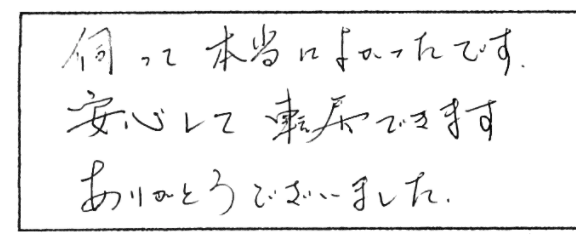 伺って本当によかったです.
安心して転居できます
ありがとうございました.